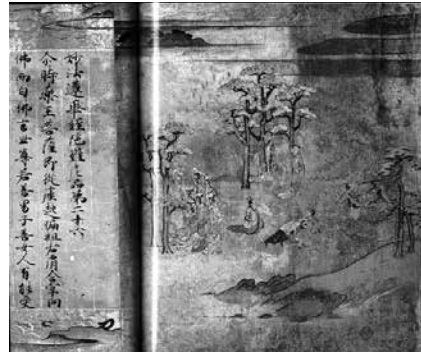 妙法蓮華經陀羅尼品第二十六
尒時藥王菩薩即從座起偏袒右肩合掌向
佛而白佛言世尊若善男子善女人有能受